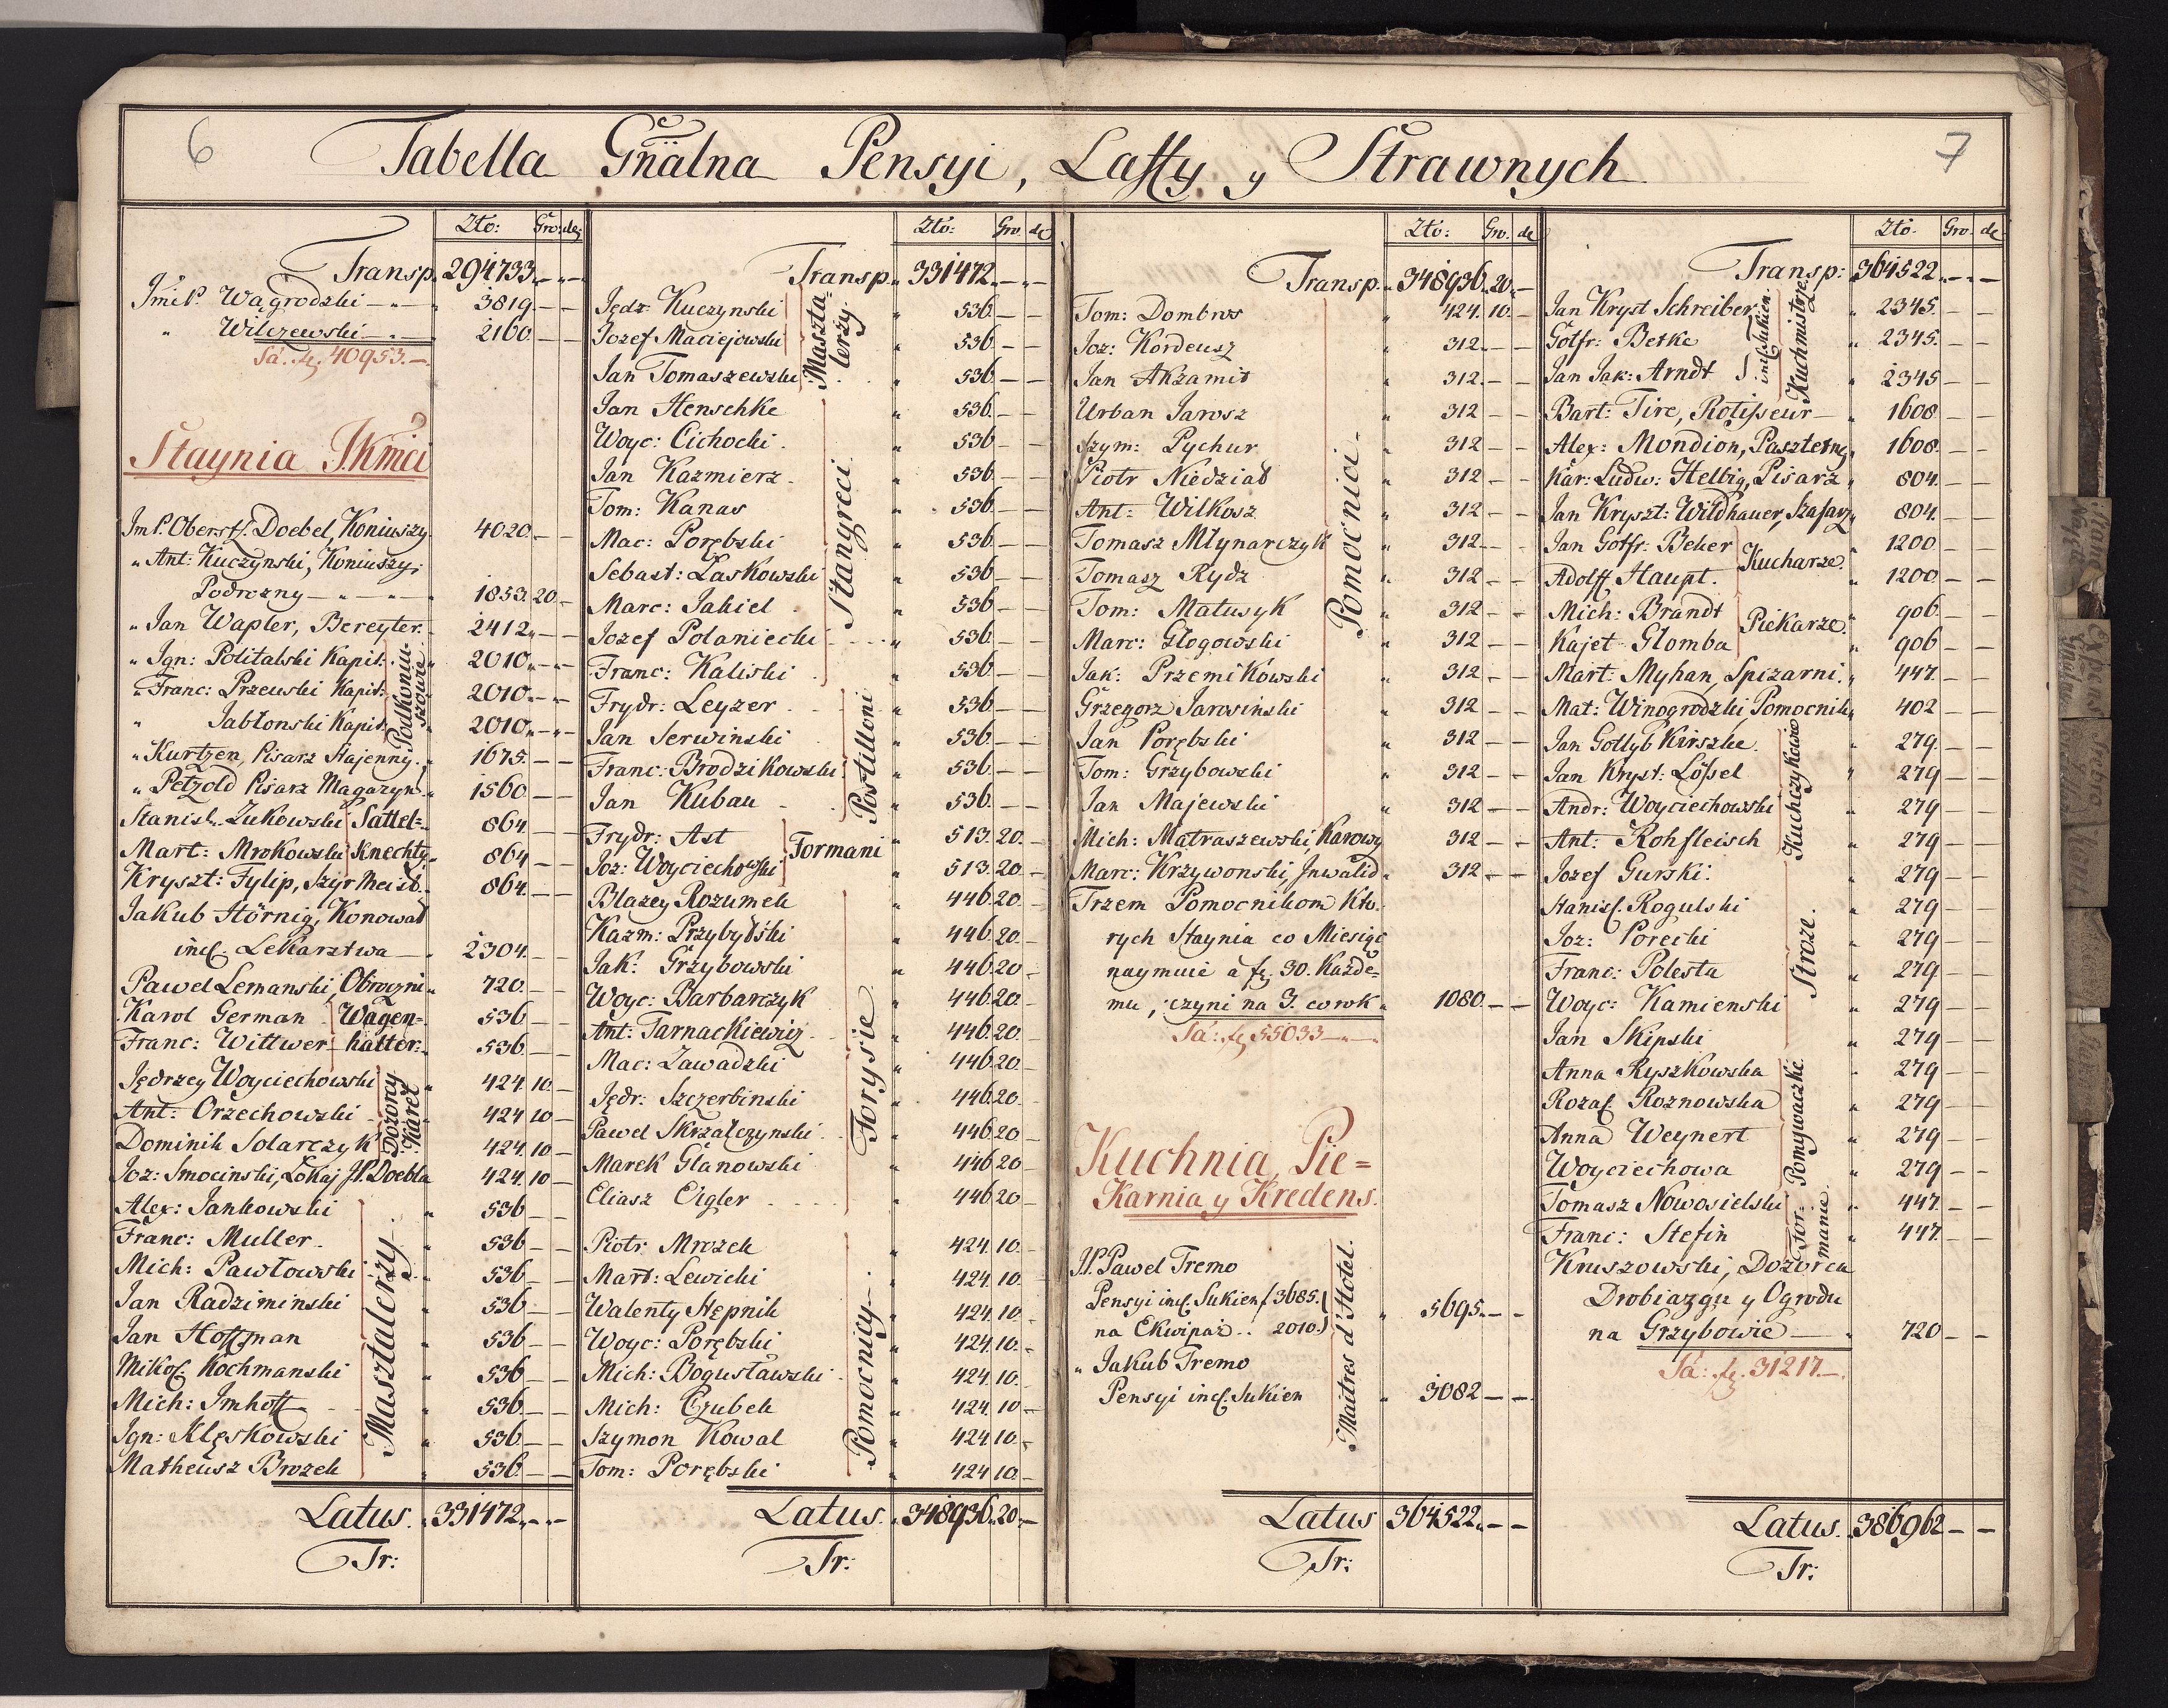 6
7
Tabella Gnälna Pensyi, Lassy y Strawnych
Zło: Gro: de:
Transp. 294733.
JmcP. Wągrodzki 3819.
" Wilczewski 2160.
Sa. fl. 40953.
Staynia J.Kmci
Jm P. Oberstl. Doebel, Koniuszy. 4020.
" Ant: Kuczynski, Koniuszy
Podrozny 1853. 20.
" Jan Wapler, Bereyter. 2412.
" Ign: Politalski Kapit: 2010.
" Franc: Przeuski Kapit: 2010.
" Jabłonski Kapit: 2010.
Podkoniu-
szowie
" Kurtzen, Pisarz Stajenny. 1675.
" Petzold Pisarz Magazyn. 1560.
Stanisl. Zukowski Sattel= 864.
Mart: Mrokowski Knechty 864.
Kryszt: Fylip, Szyrmeist. 864.
Jakub Hörnig, Konował
incl. Lekarztwa 2304.
Paweł Lemanski, Obroczni 720.
Karol German Wagen= 536
Franc: Wittwer hätter: 536.
Jędrzey Woyciechowski 424. 10.
Ant: Orzechowski 424 10
Dominik Solarczyk 424. 10
Dozorcy
Karet
Joz: Smocinski, Lokaj JP. Doebla 424. 10
Alex: Jankowski 536
Franc: Muller 536
Mich: Pawłowski 536
Jan Radziminski 536
Jan Hoffman 536
Mikoł. Kochmanski 536
Mich: Imhoff 536.
Ign: Klęskowski 536
Matheusz Brozek 536.
Masztalerzy
Latus. 331472.
Tr:
Zło: Gro. de
Transp. 331472.
Jędz: Kuczynski 536.
Jozef Maciejowski 536.
Jan Tomaszewski 536
Maszta-
lerzy
Jan Henschke 536.
Woyc: Cichocki 536
Jan Kazmierz 536.
Tom: Kanas 536
Mac: Porębski 536
Sebast: Laskowski 536
Marc: Jakiel 536
Jozef Polaniecki 536.
Franc: Kaliski 536.
Stangreci
Frydr: Leyzer 536
Jan Serwinski 536.
Franc: Brodzikowski 536
Jan Kubau 536.
Postilloni
Frydr: Ast 513. 20.
Joz: Woyciechowski 513. 20.
Formani
Blazey Rozumek 446 20.
Kazm: Przybylski 446. 20.
Jak: Grzybowski 446 20
Woyc: Barbarczyk 446 20.
Ant: Tarnackiewicz 446. 20.
Mac: Zawadzki 446. 20.
Jędr: Szczerbinski 446 20.
Pawel Skrzalczynski 446 20
Marek Glanowski 446 20
Eliasz Eigler 446 20
Forysie
Piotr: Mrozek 424. 10.
Mart: Lewicki 424. 10.
Walenty Stępnik 424. 10.
Woyc: Porębski 424. 10.
Mich: Bogusławski 424 10.
Mich: Czubek 424. 10
Szymon Kowal 424. 10.
Tom: Porębski 424 10.
Pomocnicy
Latus. 348936. 20.
Tr:
Zło: Gro. de
Transp. 348936. 20.
Tom: Dombws 424. 10.
Joz: Kordeusz 312.
Jan Akzamit 312.
Urban Jarosz 312
Szym: Pychur 312
Piotr Niedział 312
Ant: Wilkosz 312
Tomasz Młynarczyk 312
Tomasz Rydz 312
Tom: Matusyk 312
Marc: Głogowski 312
Jak: Przemikowski 312
Grzegorz Jarosinski 312
Jan Porębski 312
Tom: Grzybowski 312
Jan Majewski 312
Pomocnici
Mich: Matraszewski, Karowy 312
Marc: Krzywonski, Inwalid 312
Trzem Pomocnikom Kto-
rych Staynia co Miesiąc
naymuie a fl. 30. Kazde=
mu, czyni na 3. corok 1080.
Sa: fl. 55033
Kuchnia, Pie=
karnia y Kredens.
JP. Paweł Tremo
Pensyi incl. Sukien 3685.
na Ekwipaż .. 2010. 5695.
" Jakub Tremo
Pensyi incl. Sukien 3082
Maitres d'Hotel.
Latus 364522.
Tr:
Zło. Gro. de
Transp: 364522.
Jan Kryst Schreiber 2345.
Gotfr: Betke 2345.
Jan Jak: Arndt 2345
incl. Sukien.
Kuchmistrze
Bart: Tire, Rotisseur 1608.
Alex: Mondion, Pasztetny 1608.
Kar: Ludw: Helbig, Pisarz 804.
Jan Kryszt: Wildhauer, Szafarz 804.
Jan Gotfr: Beker 1200
Adolff Haupt. 1200
Kucharze.
Mich: Brandt 906.
Kajet Glomba 906
Piekarze.
Mart: Myhan, Spizarni. 447.
Mat: Winogrodzki Pomocnik 402
Jan Gotlyb Kirszke 279.
Jan Kryst: Lössel 279
Andr: Woyciechowski 279
Ant: Rohfleisch 279
Kuchczykowie
Jozef Gurski 279
Stanisl. Rogulski 279
Joz: Porecki 279
Franc: Polesta 279
Woyc: Kamienski 279
Jan Skipski 279
Stroze.
Anna Ryszkowska 279
Rozal. Roznowska 279
Anna Weynert 279
Woyciechowa 279
Pomywaczki
Tomasz Nowosielski 447.
Franc: Stefin 447.
For-
mani
Kruszowski, Dozorca
Drobiazgu y Ogrodu
na Grzybowie 720
Sa: fl. 31217.
Latus. 386962
Tr: